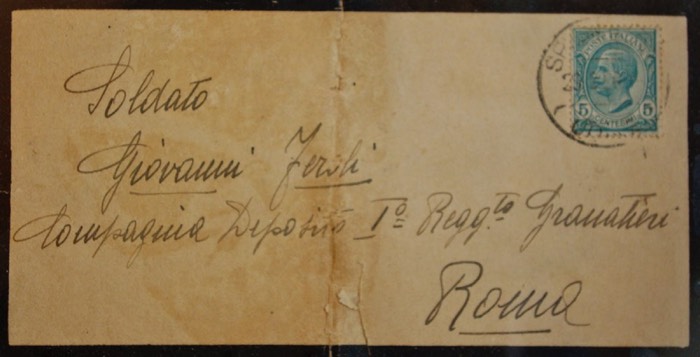 Soldato
Giovanni Feroli
Compagnia Deposito 1º Regg.to Granatieri
Roma
POSTE ITALIANE
5 5